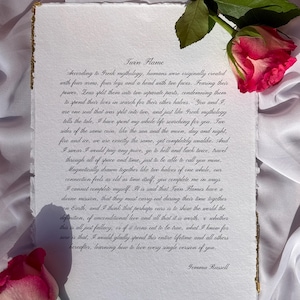 Twin Flame
According to Greek mythology, humans were originally created
with four arms, four legs and a head with two faces. Fearing their
power, Zeus split them into two separate parts, condemning them
to spend their lives in search for their other halves. You and I,
are one soul that was split into two, and just like Greek mythology
tells the tale, I have spent my whole life searching for you. Two
sides of the same coin, like the sun and the moon, day and night,
fire and ice, we are exactly the same, yet completely
I swear, I would pay any price, go to hell and back twice, travel
through all of space and time, just to be able to call you mine.
Magnetically drawn together like two halves of one whole, our
connection feels as old as time itself, you complete me in ways
I cannot complete myself. It is said that Twin Flames have a
divine mission, that they must carry out during their time together
on Earth, and I think that perhaps ours is to show the world the
definition, of unconditional love and all that it is worth,
this is all just fallacy, or if it seems not to be true, what I know for
is that, I would gladly spend this entire lifetime and all others
hereafter, learning how to love every single version of you.
Gemma Russell